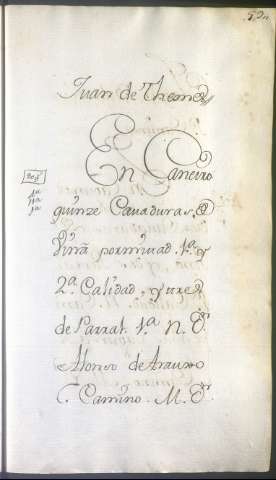 Juan de Thome
En Caneiro
quinze Cavaduras, de
Viña por mitad. 1.ª y
2.ª Calidad, y tres
de Parral. 1.ª N. Dr.
Alonso de Arauxo
C. Camino. M. Dr.